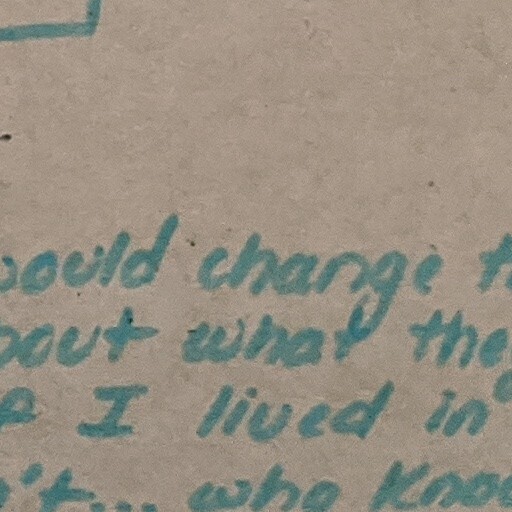 would change th
bout what the
I lived in
't... who Kno